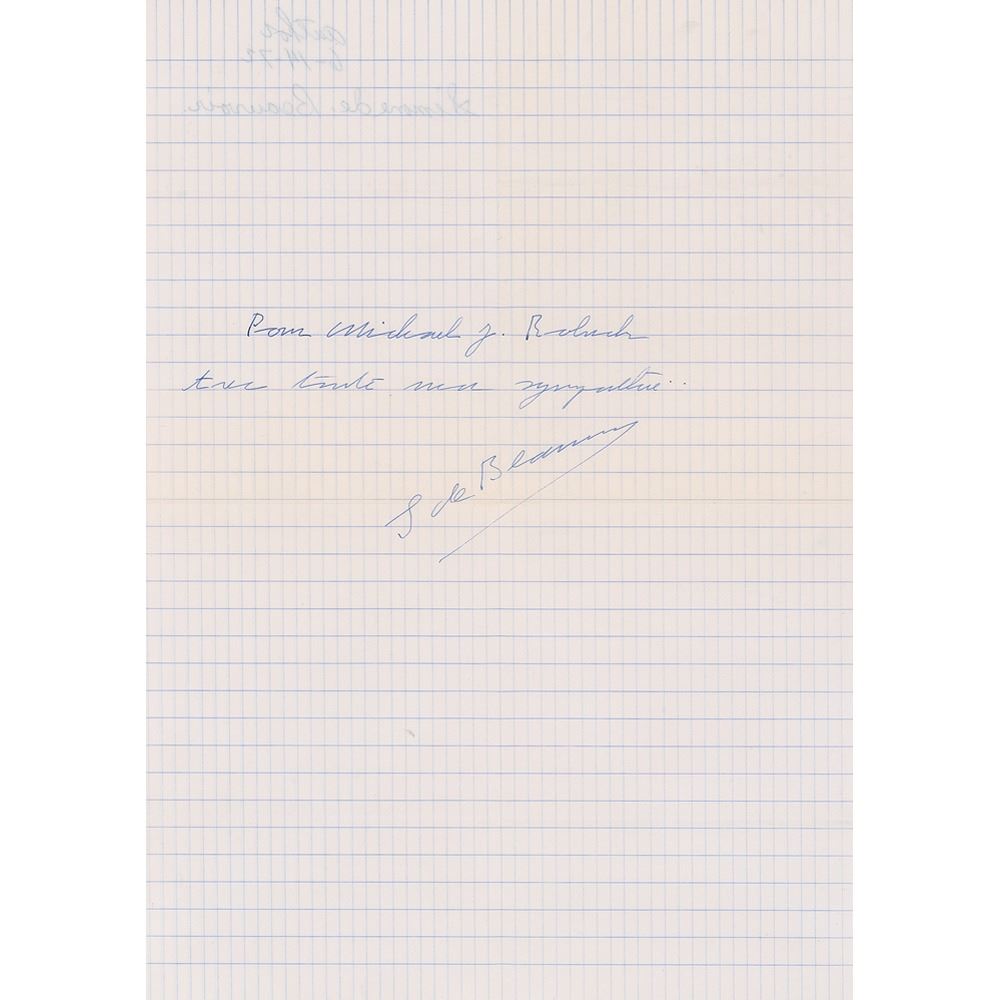 author
6-14-72
Simone de Beauvoir.
Pour Michael J.
avec toute ma sympathie
S de Beauvoir